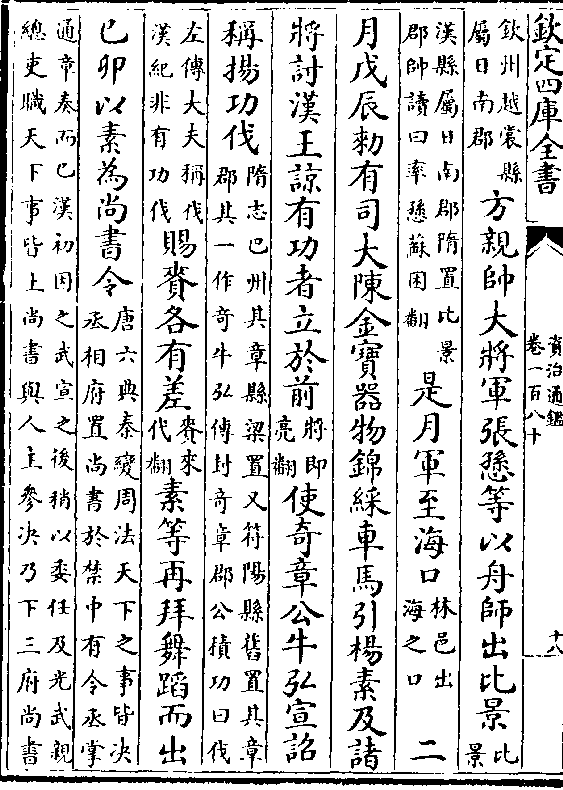 欽定四庫全書
資治通鑑
卷一百八十
十八
欽州越裳縣
屬日南郡
方親帥大將軍張愻等以舟師出比景
比
景
漢縣屬日南郡隋置比景
郡帥讀曰率愻蘇困翻
是月軍至海口
林邑出
海之口
二
月戊辰勑有司大陳金寶器物錦綵車馬引楊素及諸
將討漢王諒有功者立於前
將即
亮翻
使奇章公牛弘宣詔
稱揚功伐
隋志巴州其章縣梁置又符陽縣舊置其章
郡其一作奇牛弘傳封奇章郡公積功曰伐
左傳大夫稱伐
漢紀非有功伐
賜賚各有差
賚來
代翻
素等再拜舞蹈而出
已卯以素為尚書令
唐六典秦變周法天下之事皆決
丞相府置尚書於禁中有令丞掌
通章奏而已漢初因之武宣之後稍以委任及光武親
總吏職天下事皆上尚書與人主參決乃下三府尚書